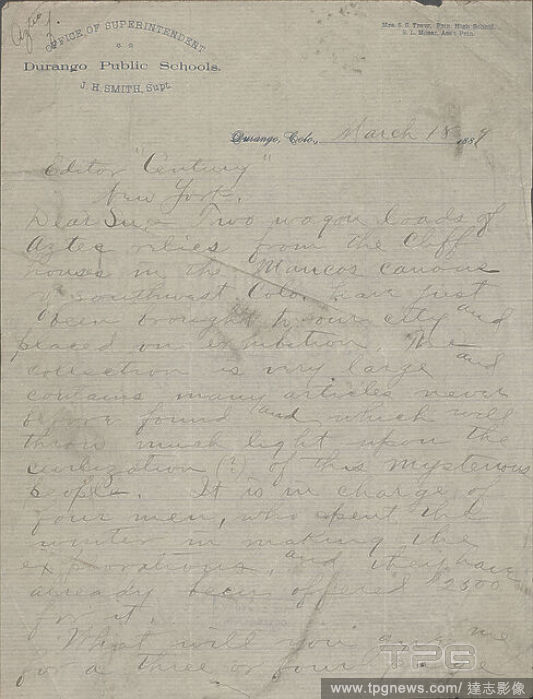 Aztec
OFFICE OF SUPERINTENDENT
Durango Public Schools.
J. H. SMITH, Supt.
Mrs. S. S. Trew, Prin. High School.
S. L. Moser, Ass't Prin.
Durango, Colo., March 18 1889
Editor "Century"
New York,
Dear Sir;- Two wagon loads of
Aztec relics from the Cliff
houses in the Mancos canons
of southwest Colo. have just
been brought to our city and
placed on exhibition. The
collection is very large and
contains many articles never
before found and which will
throw much light upon the
civilization (?) of this mysterious
people. It is in charge of
four men, who spent the
winter in making the
explorations, and they have
already been offered $2500
for it.
What will you give me
for a three or four
TPG
www.tpgnews.com / 達志影像